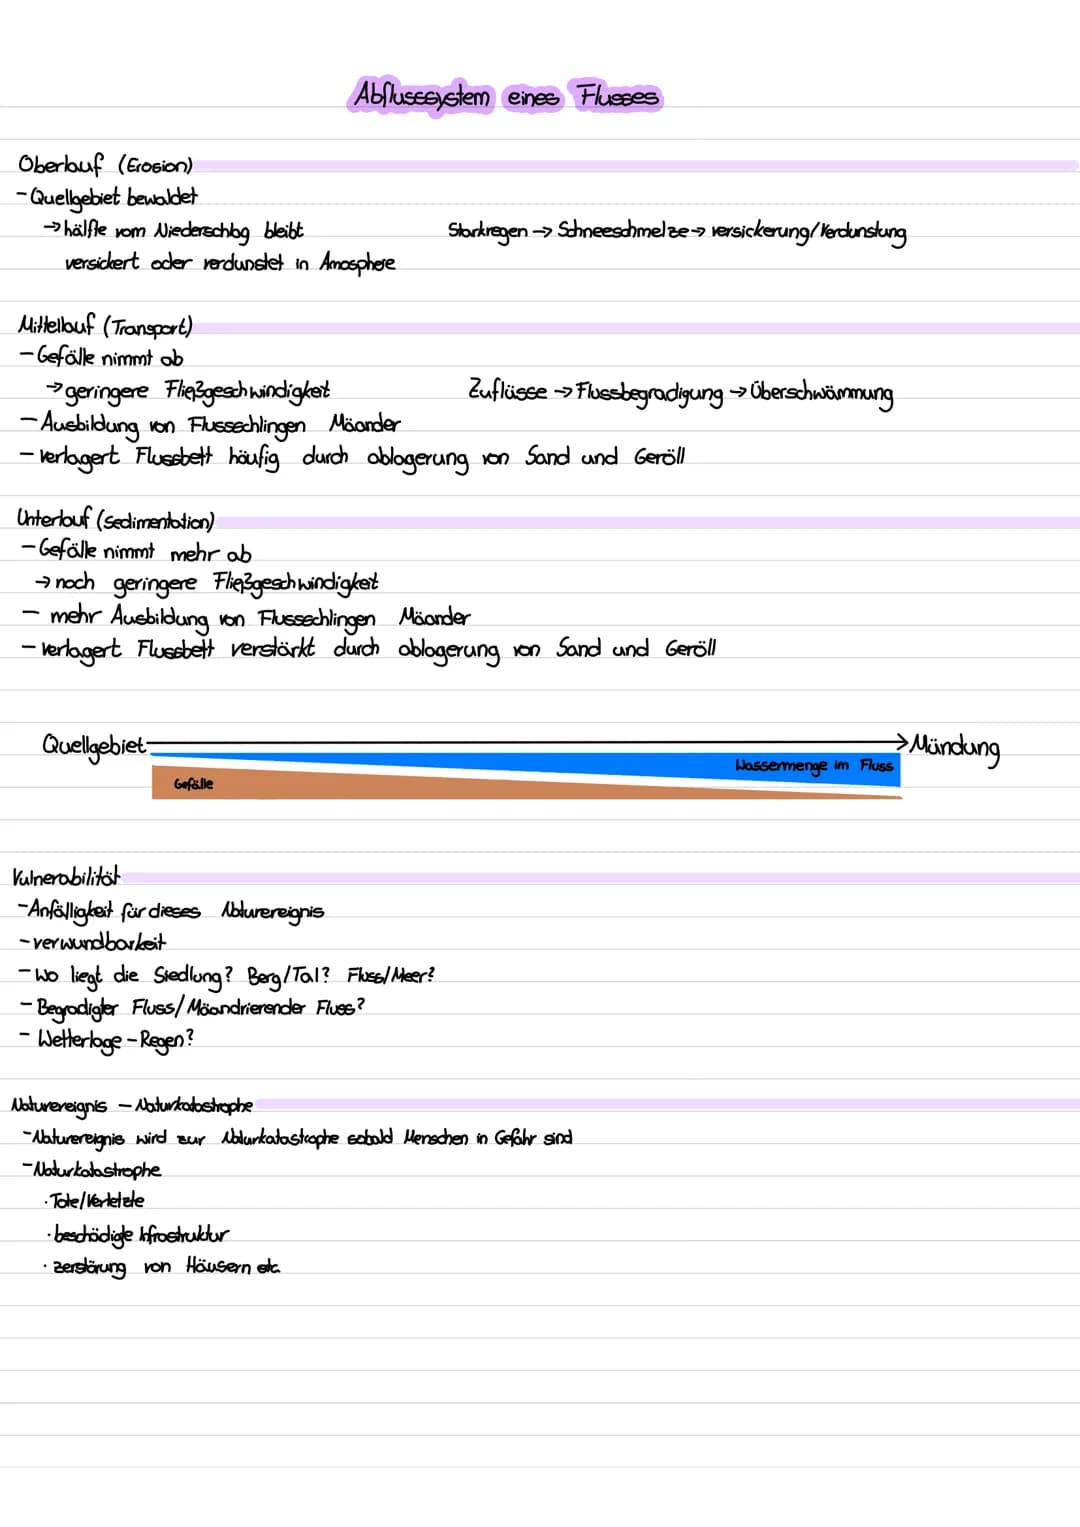 Abflusssystem eines Flusses
Oberlauf (Erosion)
- Quellgebiet bewaldet
→ hälfte vom Niederschlag bleibt
Starkregen → Schneeschmelze → versickerung/Verdunstung
versickert oder verdunstet in Amosphere
Mittellauf (Transport)
- Gefälle nimmt ab
→ geringere Fließgeschwindigkeit
Zuflüsse → Flussbegradigung → Überschwämmung
- Ausbildung von Flussschlingen Mäander
- verlagert Flussbett häufig durch ablagerung von Sand und Geröll
Unterlauf (Sedimentation)
- Gefälle nimmt mehr ab
→ noch geringere Fließgeschwindigkeit
- mehr Ausbildung von Flussschlingen Mäander
- verlagert Flussbett verstärkt durch ablagerung von Sand und Geröll
Quellgebiet → Mündung
Wassermenge im Fluss
Gefälle
Vulnerabilität
- Anfälligkeit für dieses Naturereignis
- verwundbarkeit
- Wo liegt die Siedlung? Berg/Tal? Fluss/Meer?
- Begradigter Fluss/Mäandrierender Fluss?
- Wetterlage - Regen?
Naturereignis - Naturkatastrophe
- Naturereignis wird zur Naturkatastrophe sobald Menschen in Gefahr sind
- Naturkatastrophe
· Tote/Verletzte
· beschädigte Infrastruktur
· zerstörung von Häusern etc.